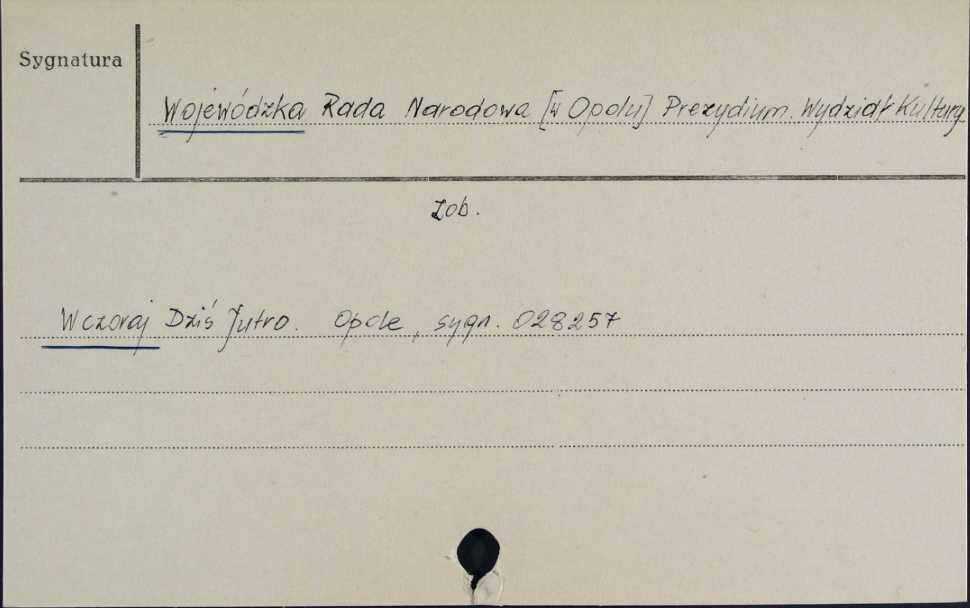 Sygnatura
Wojewódzka Rada Narodowa [w Opolu] Prezydium. Wydział Kultury
Zob.
Wczoraj Dziś Jutro. Opole, sygn. 028257